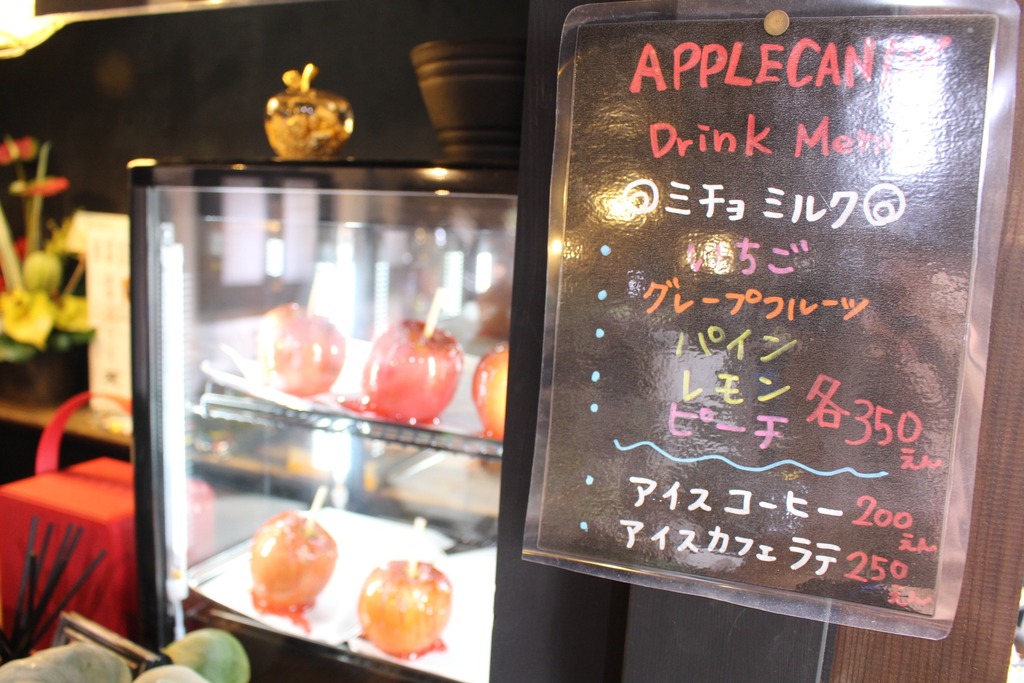 APPLECAN
Drink Menu
ミチョミルク
いちご
グレープフルーツ
パイン
レモン
ピーチ
各350えん
アイスコーヒー 200えん
アイスカフェラテ 250えん